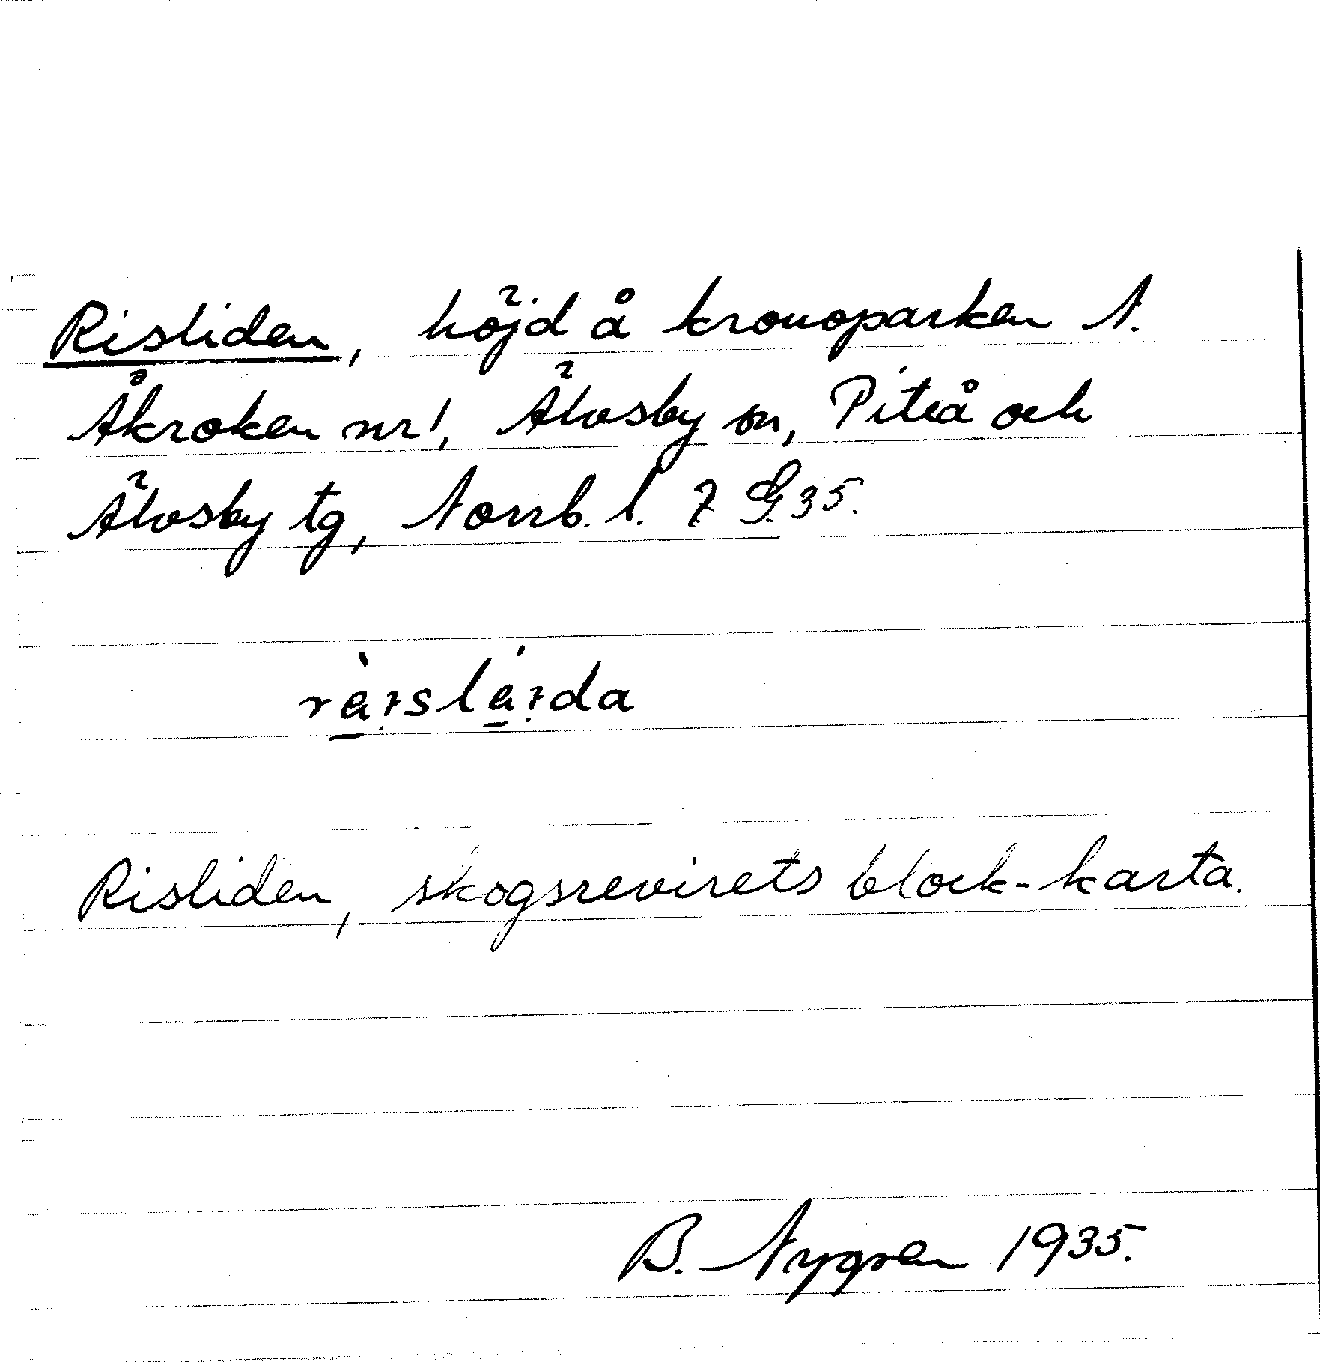 Risliden, höjd å kronoparken N.
Åkroken nr 1, Älvsby sn, Piteå och
Älvsby tg, Norrb. l. 7 G. 35.
rà̱i̯slá̱i̯da
Risliden, skogsrevirets block-karta.
B. Nygren 1935.